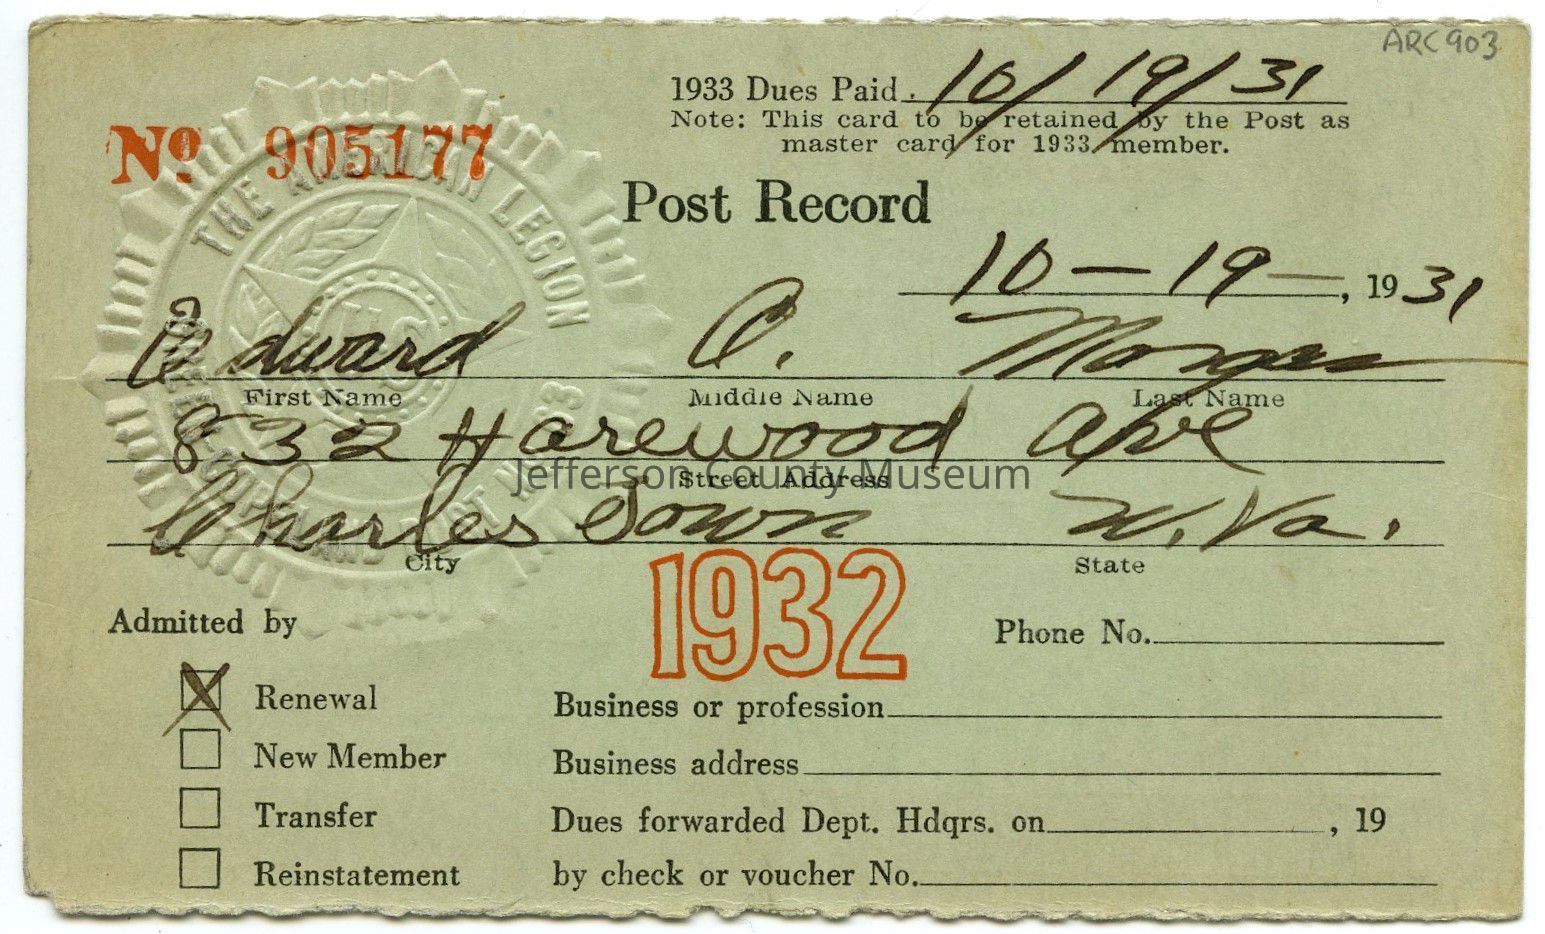 ARC903
1933 Dues Paid 10/19/31
Note: This card to be retained by the Post as
master card for 1933 member.
No 905177
THE AMERICAN LEGION
Post Record
10-19-, 1931
Edward O. Morgan
First Name Middle Name Last Name
832 Harewood Ave
Street Address
Jefferson County Museum
Charles Town W. Va.
City State
1932
Admitted by
Phone No.
X Renewal
Business or profession
New Member
Business address
Transfer
Dues forwarded Dept. Hdqrs. on , 19
Reinstatement
by check or voucher No.